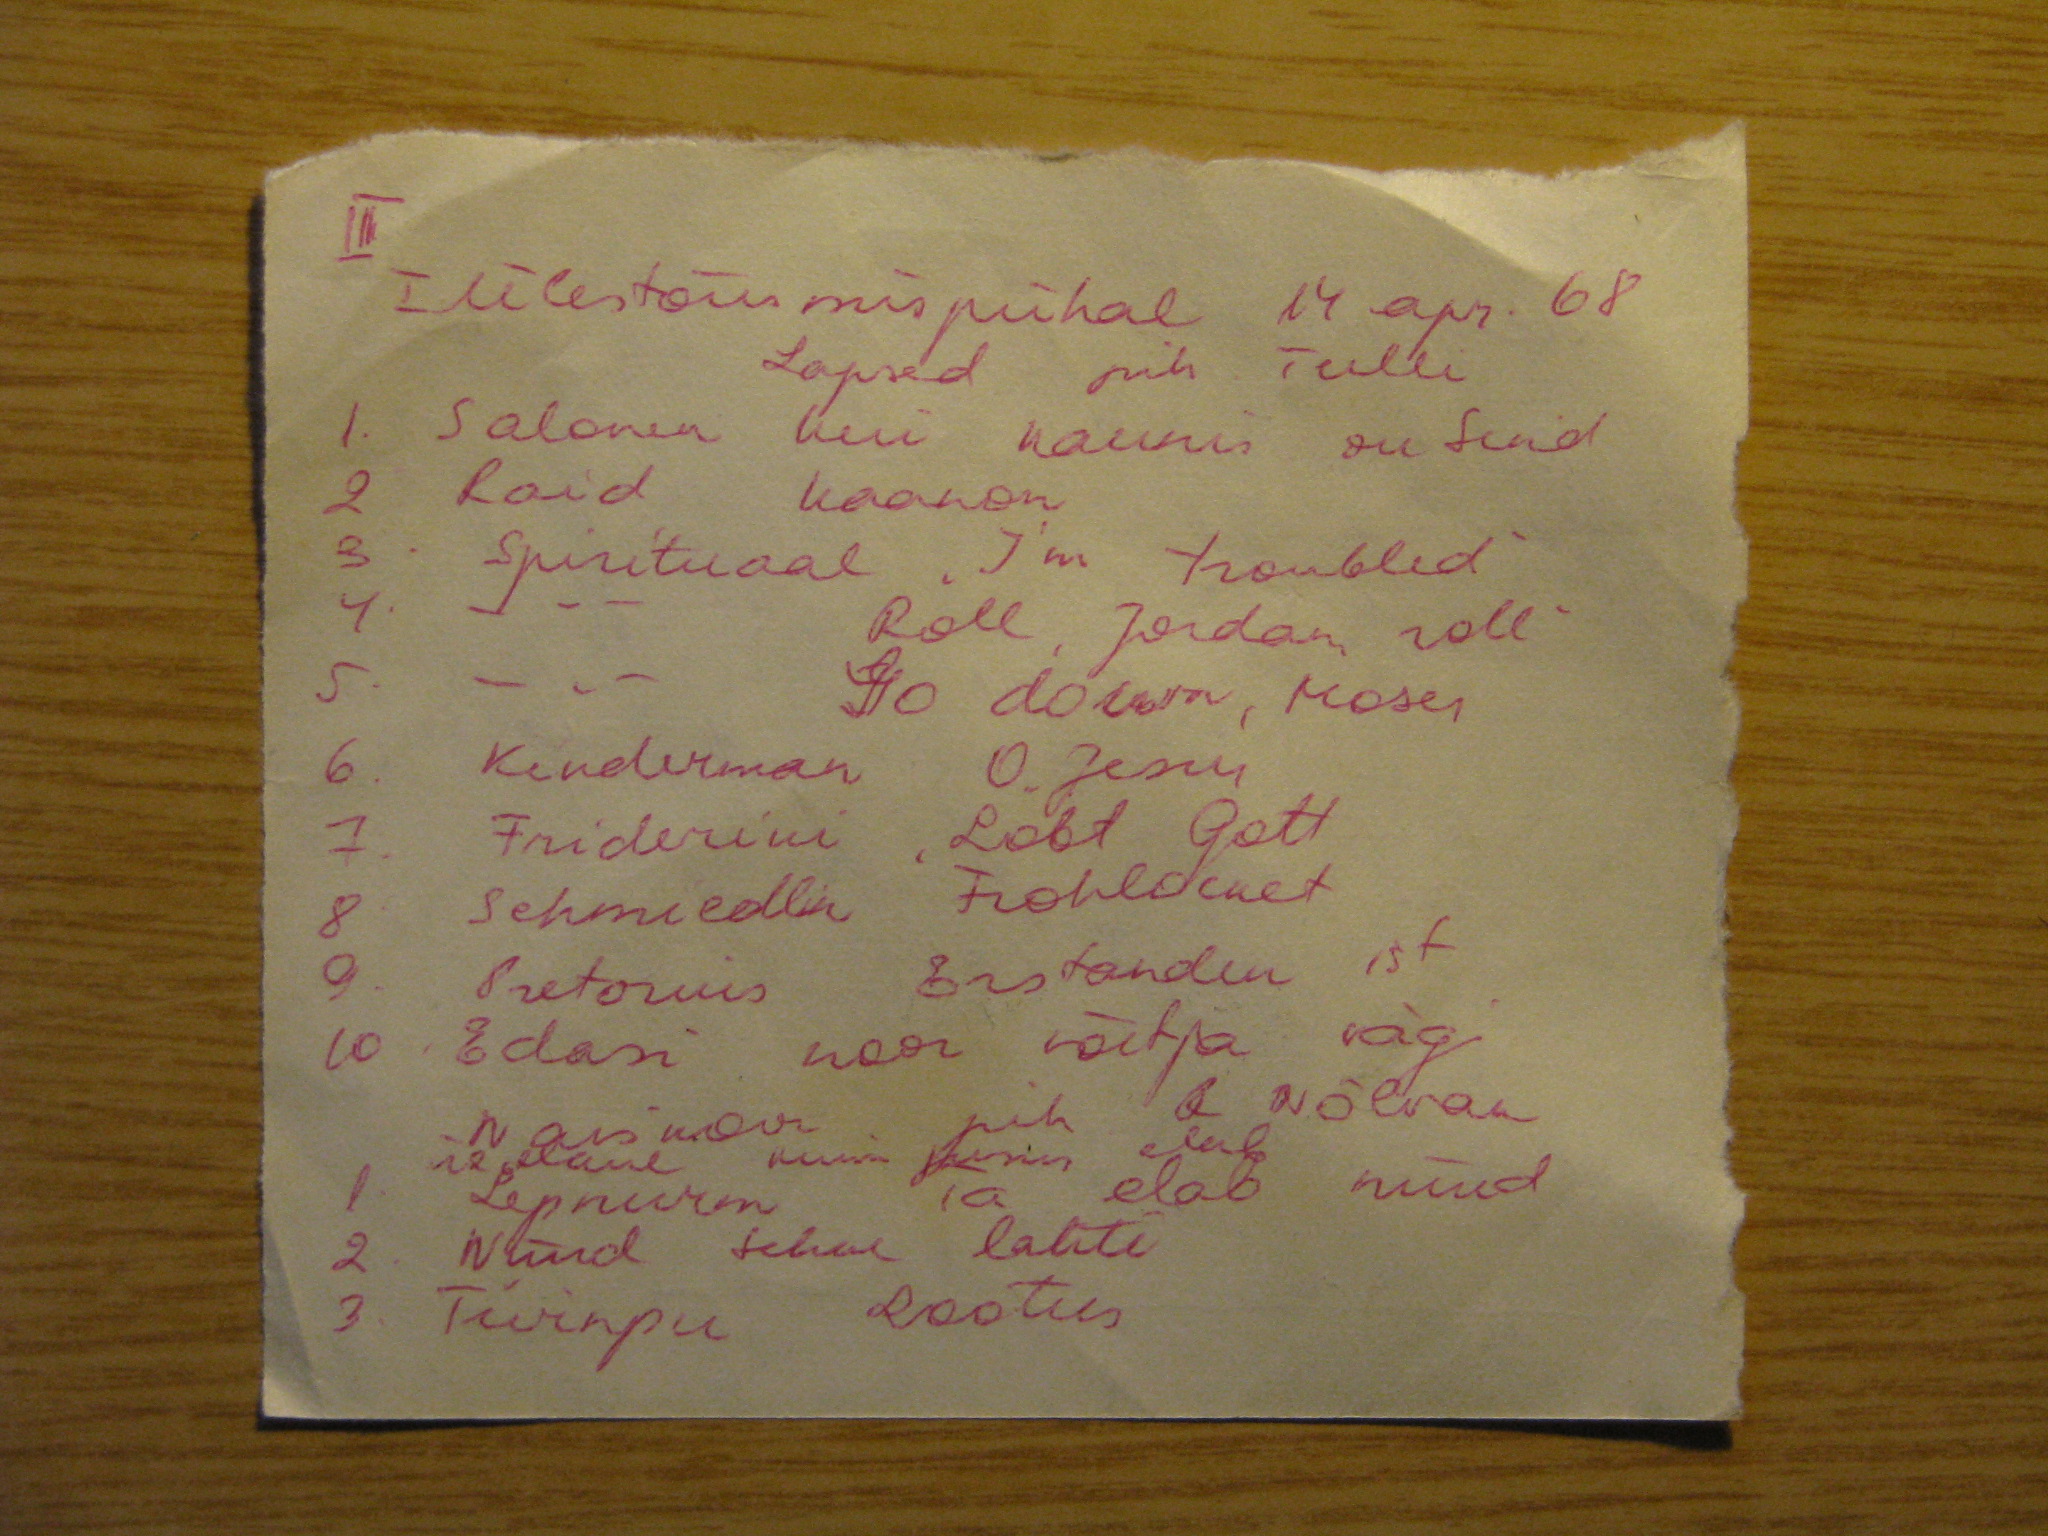 III
I Ülestõusmispühal 14 apr. 68
Lapsed juh Tulli
1. Salonen Kui kaunis on Sind
2 Raid kaanon
3. Spirituaal "I'm troubled"
4. — " — Roll, Jordan, roll"
5. — " — Go down, Moses
6. Kinderman O. Jesus
7. Friderini, Lobt Gott
8 Schmiedlin Frohlocket
9. Pretorius Erstanden ist
10. Edasi noor võitja vägi
Naiskoor juh R Nõlvak
elab
1. Lepnurm Ta elab nüüd
2. Nüüd lahti
3. Türnpu Lootus